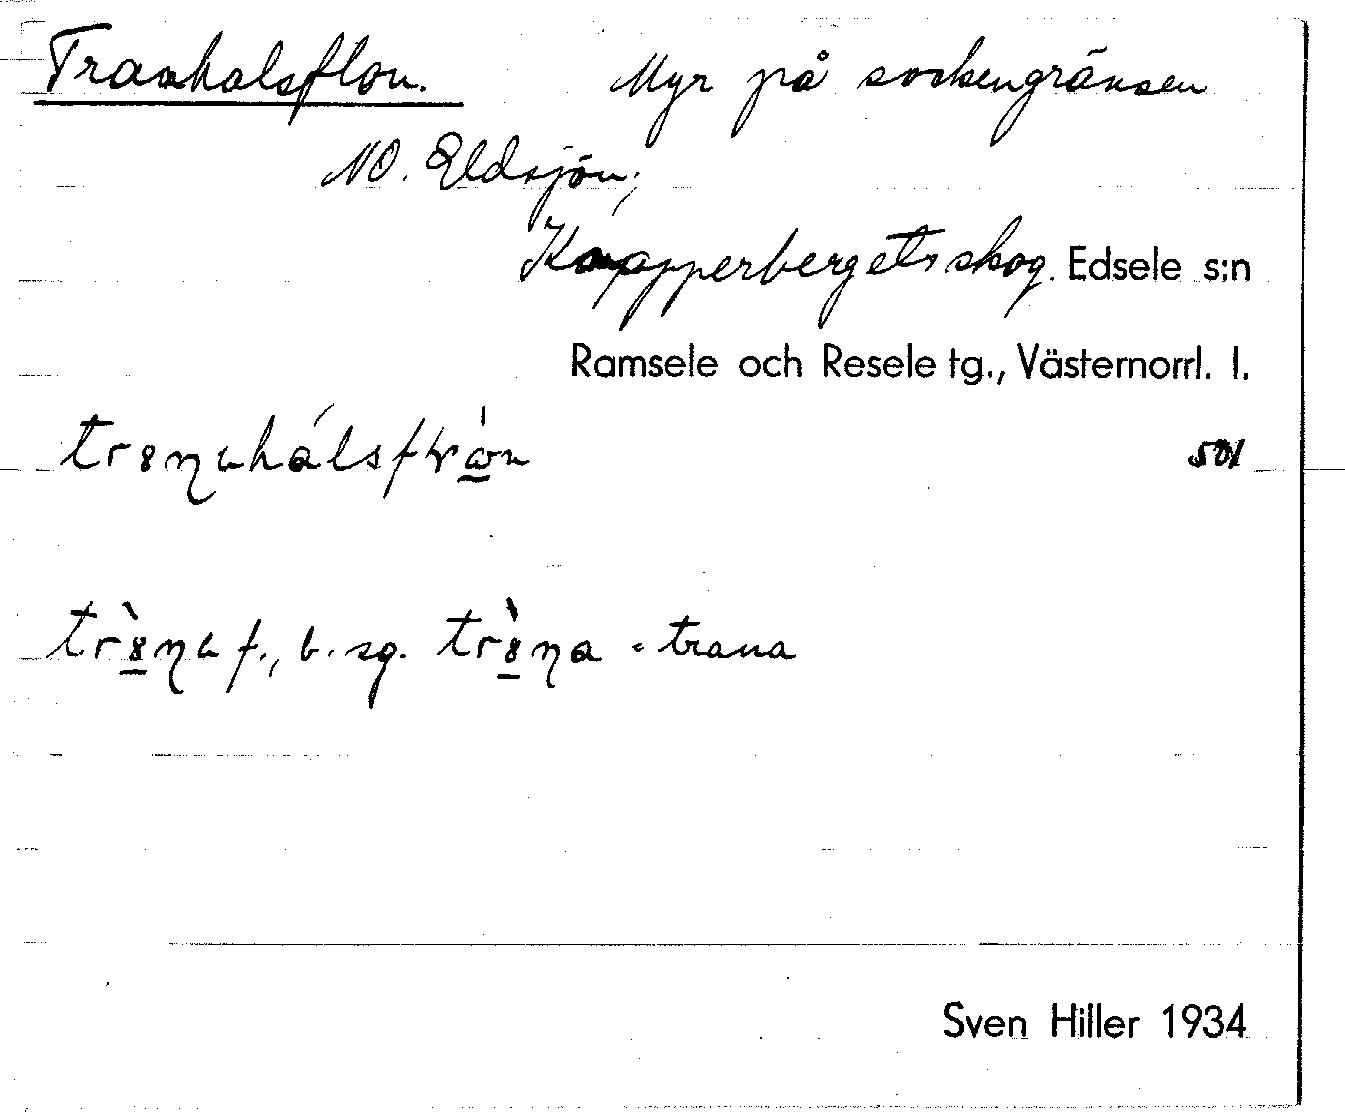 Tranhalsflon. Myr på sockengränsen
NO. Eldsjön;
Kopperbergets skog. Edsele s:n
Ramsele och Resele tg., Västernorrl. l.
501
f., b. sg. = trana
Sven Hiller 1934